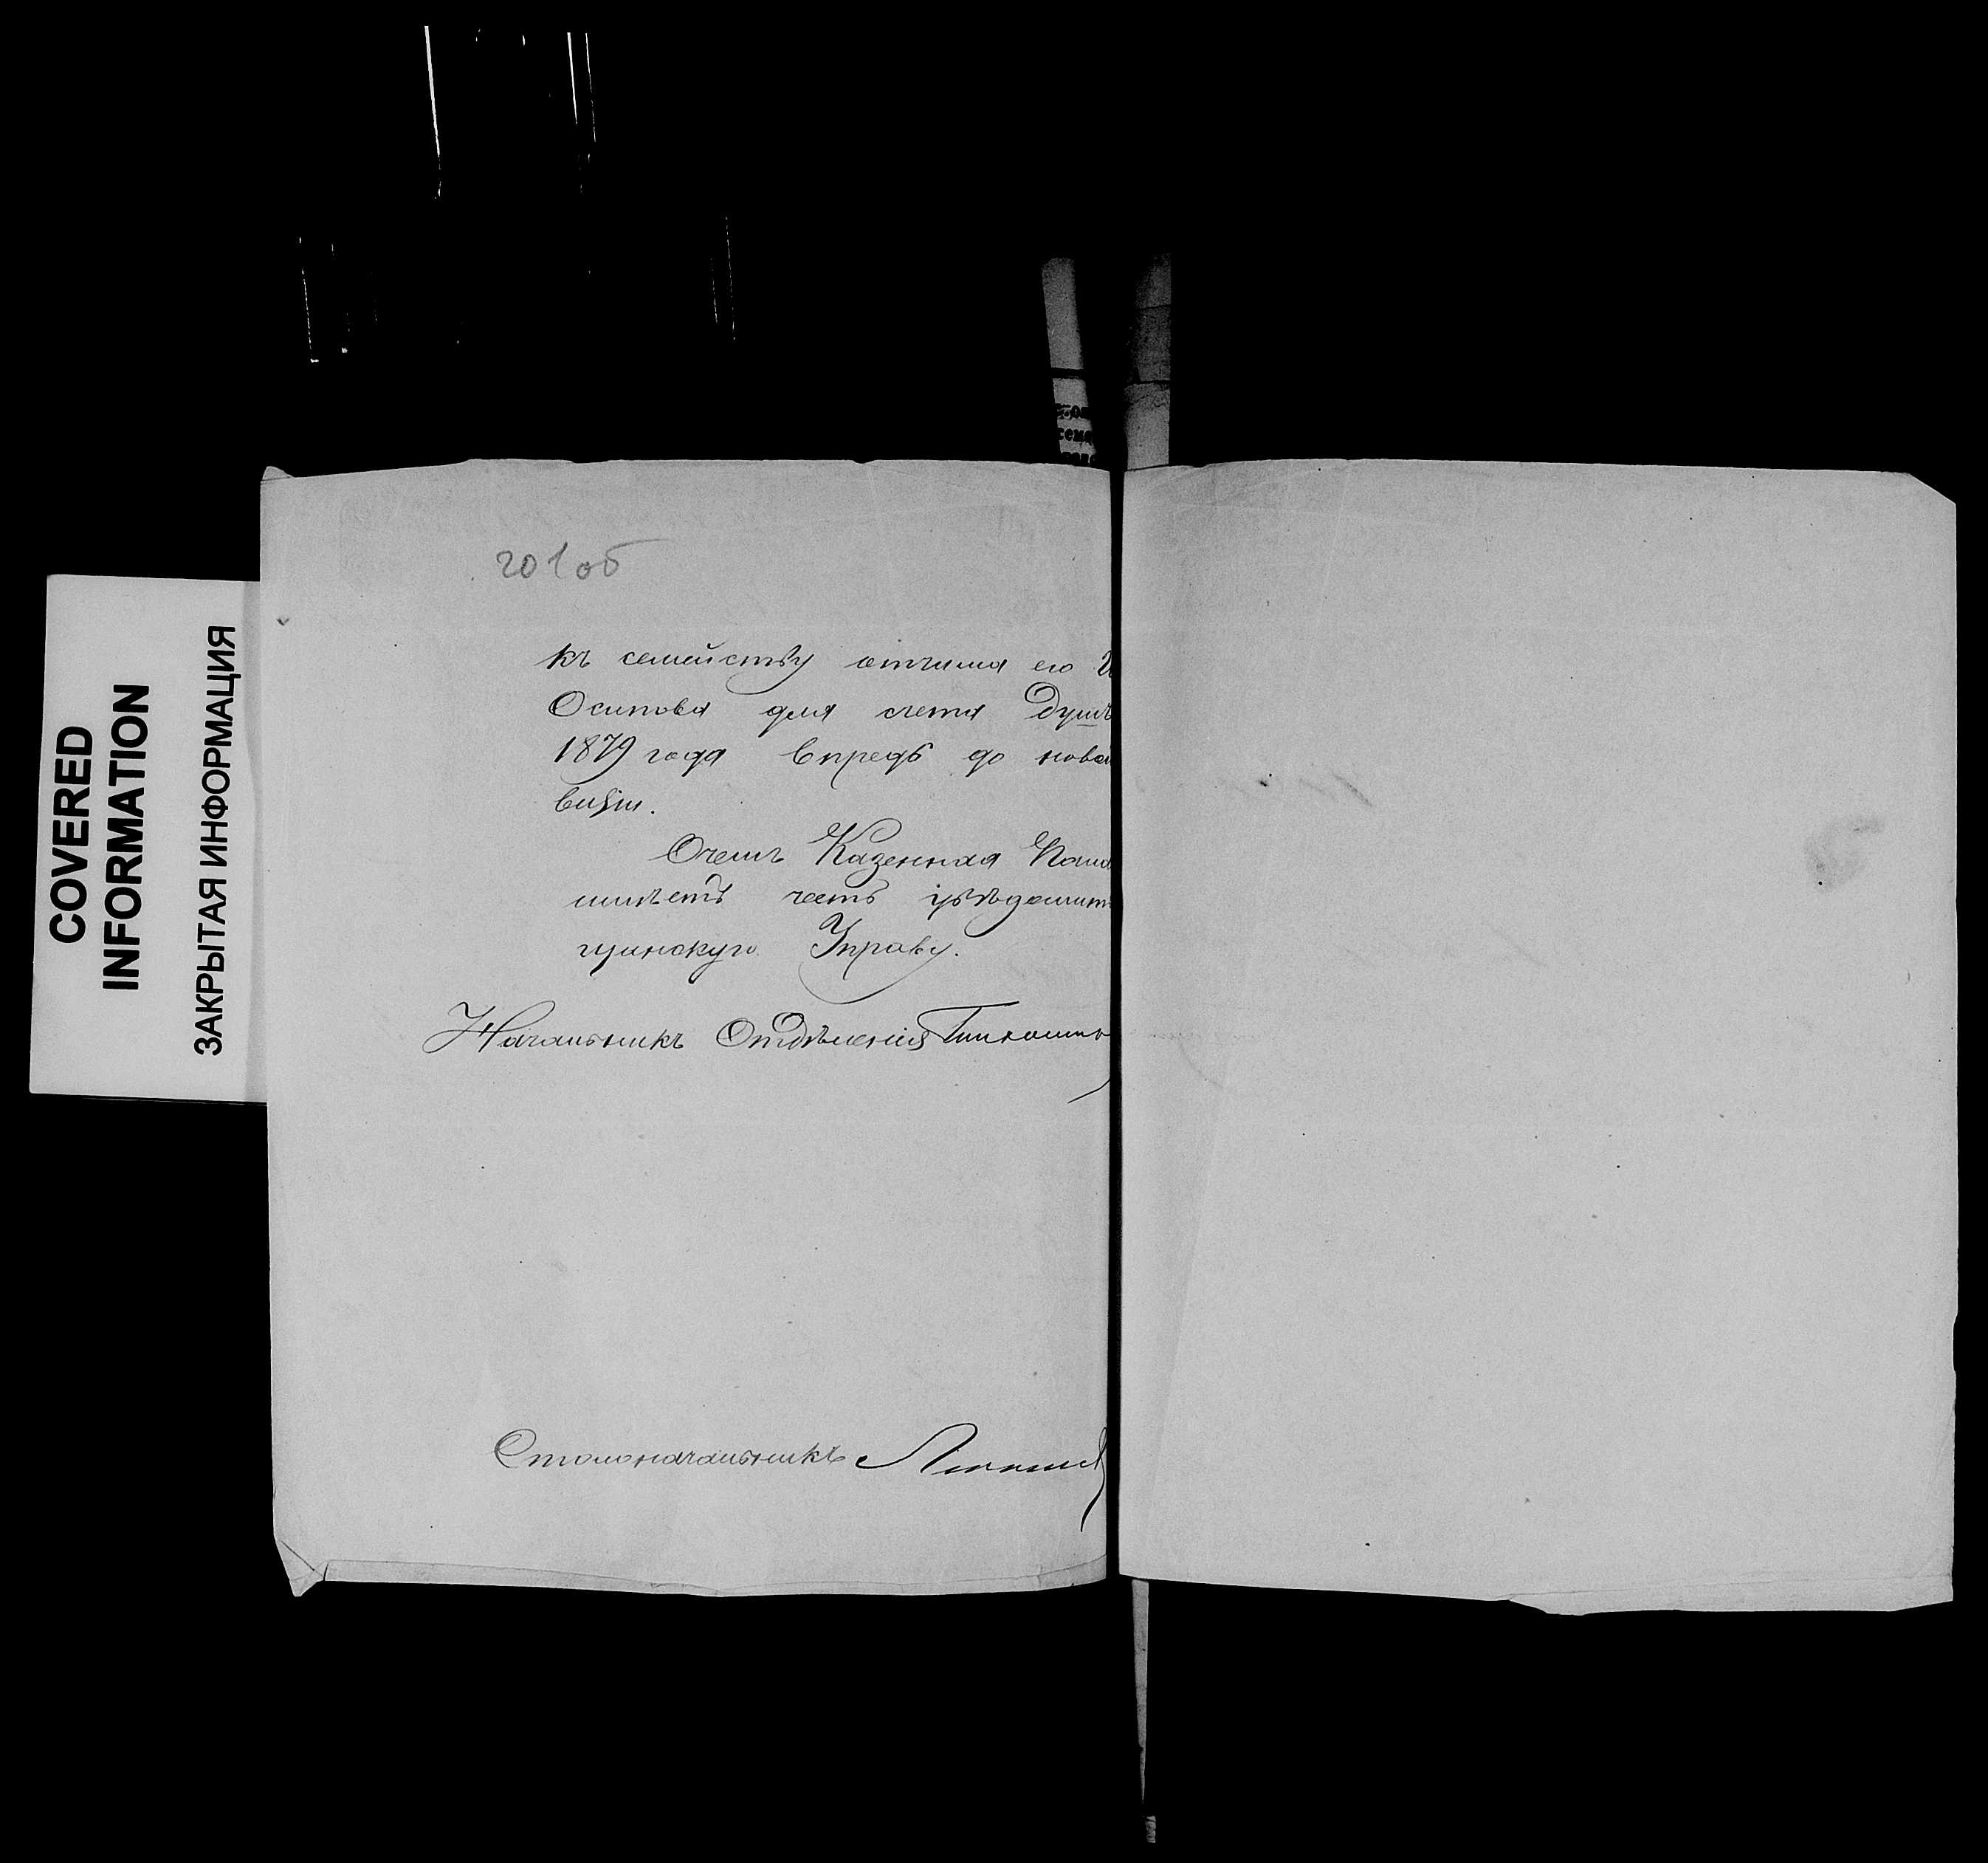 COVERED
INFORMATION
ЗАКРЫТАЯ ИНФОРМАЦИЯ
201об
къ семейству отчима его
Осипова для счета душъ
1879 года впредь до ново
визіи.
О чемъ Казенная Пала
имѣетъ честь увѣдомит
щанскую Управу.
Начальникъ Отдѣленія
Столоначальникъ